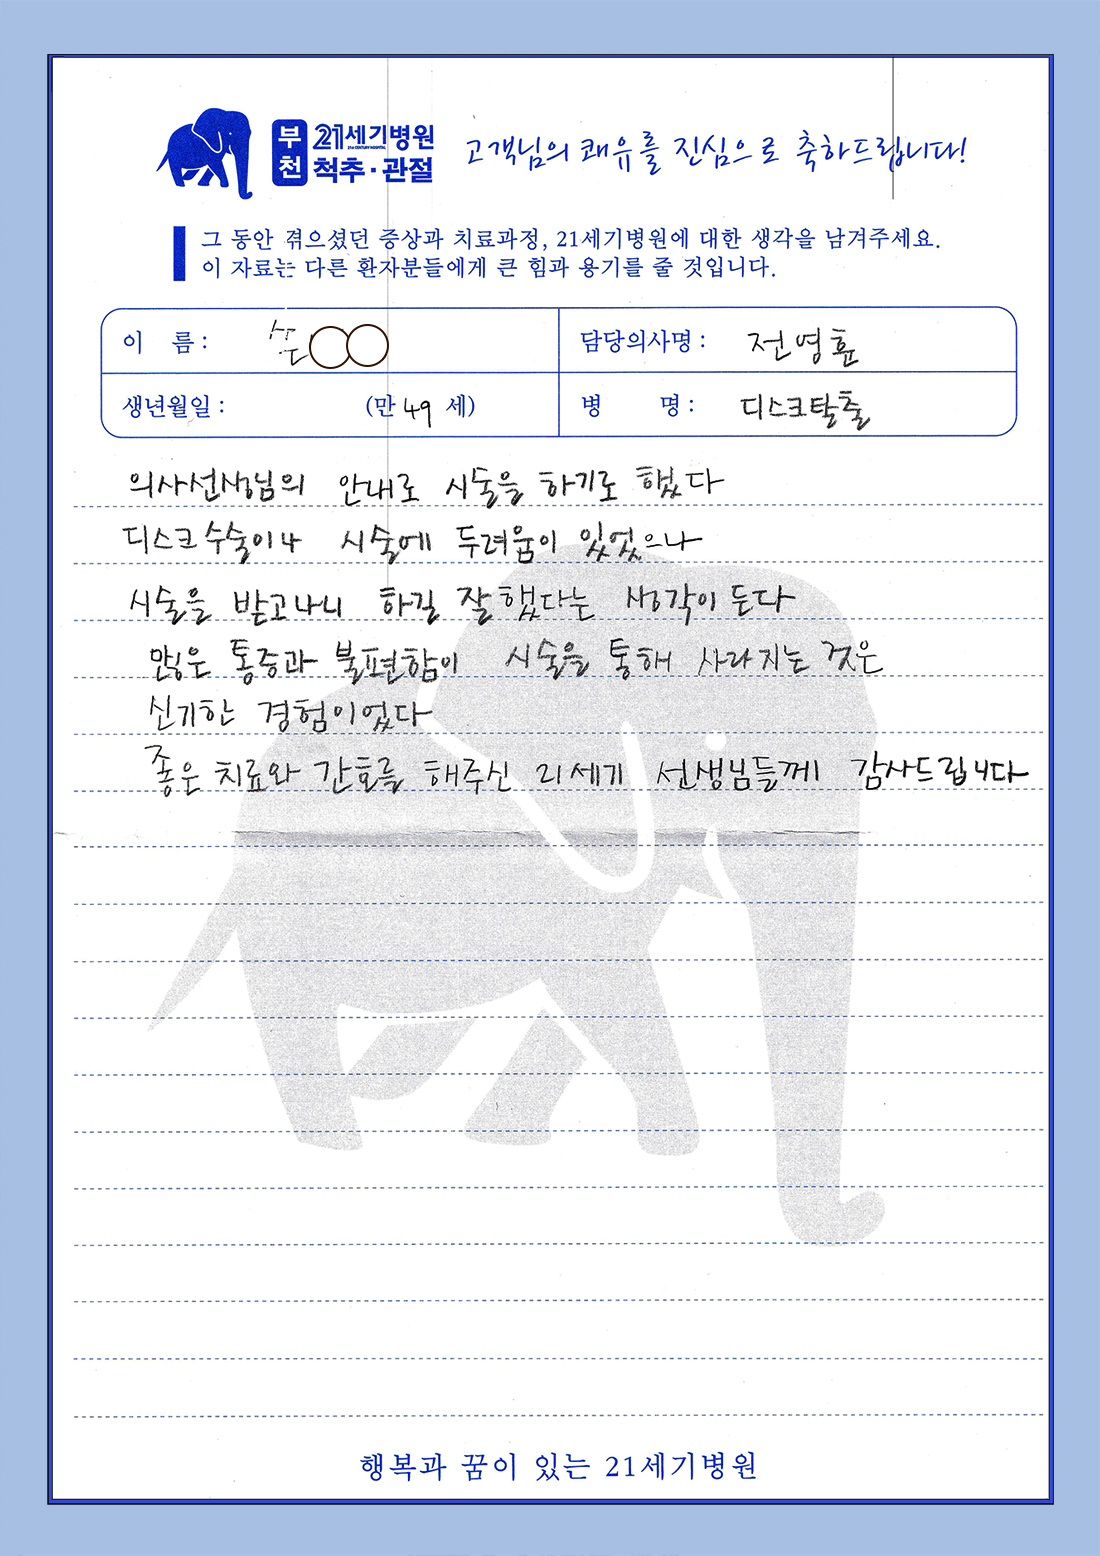 부천 21세기병원
21st CENTURY HOSPITAL
척추·관절
고객님의 쾌유를 진심으로 축하드립니다!
그 동안 겪으셨던 증상과 치료과정, 21세기병원에 대한 생각을 남겨주세요.
이 자료는 다른 환자분들에게 큰 힘과 용기를 줄 것입니다.
이 름 :
담당의사명 : 전영훈
생년월일 : (만 49 세)
병 명 : 디스크탈출
의사선생님의 안내로 시술을 하기로 했다
디스크수술이나 시술에 두려움이 있었으나
시술을 받고나니 하길 잘했다는 생각이 든다
많은 통증과 불편함이 시술을 통해 사라지는 것은
신기한 경험이었다
좋은 치료와 간호를 해주신 21세기 선생님들께 감사드립니다
행복과 꿈이 있는 21세기병원